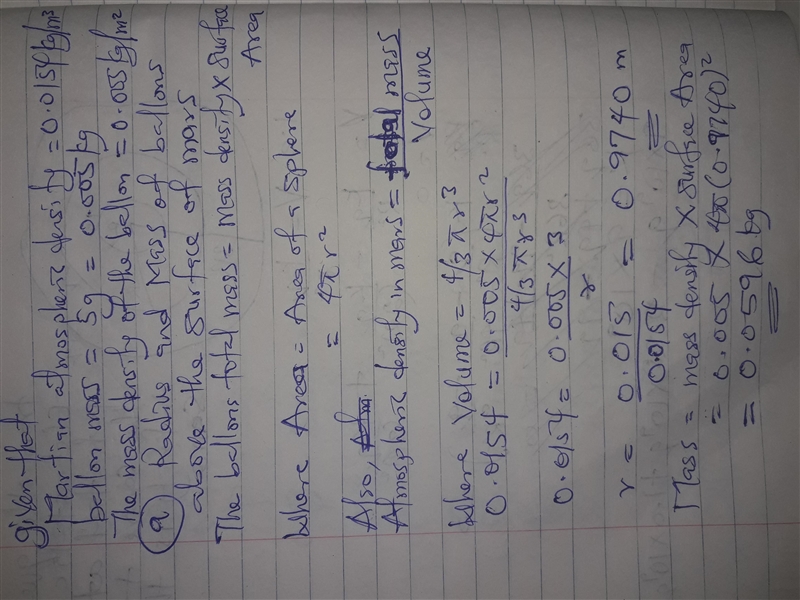 given that
Martian atmospheric density = 0.0154 kg/m³
ballon mass = 5g = 0.005kg
The mass density of the ballon = 0.005 kg/m²
(a) Radius and Mass of ballons
above the surface of mars
The ballons total mass = mass density × surface
Area
Where Area = Area of a sphere
= 4πr²
Also,
Atmospheric density in mars = mass
Volume
Where Volume = 4/3 πr³
0.0154 = 0.005 × 4πr²
4/3 πr³
0.0154 = 0.005 × 3
r
r = 0.015 = 0.9740 m
0.0154
Mass = mass density × surface Area
= 0.005 × 4π(0.9740)²
= 0.0596 kg